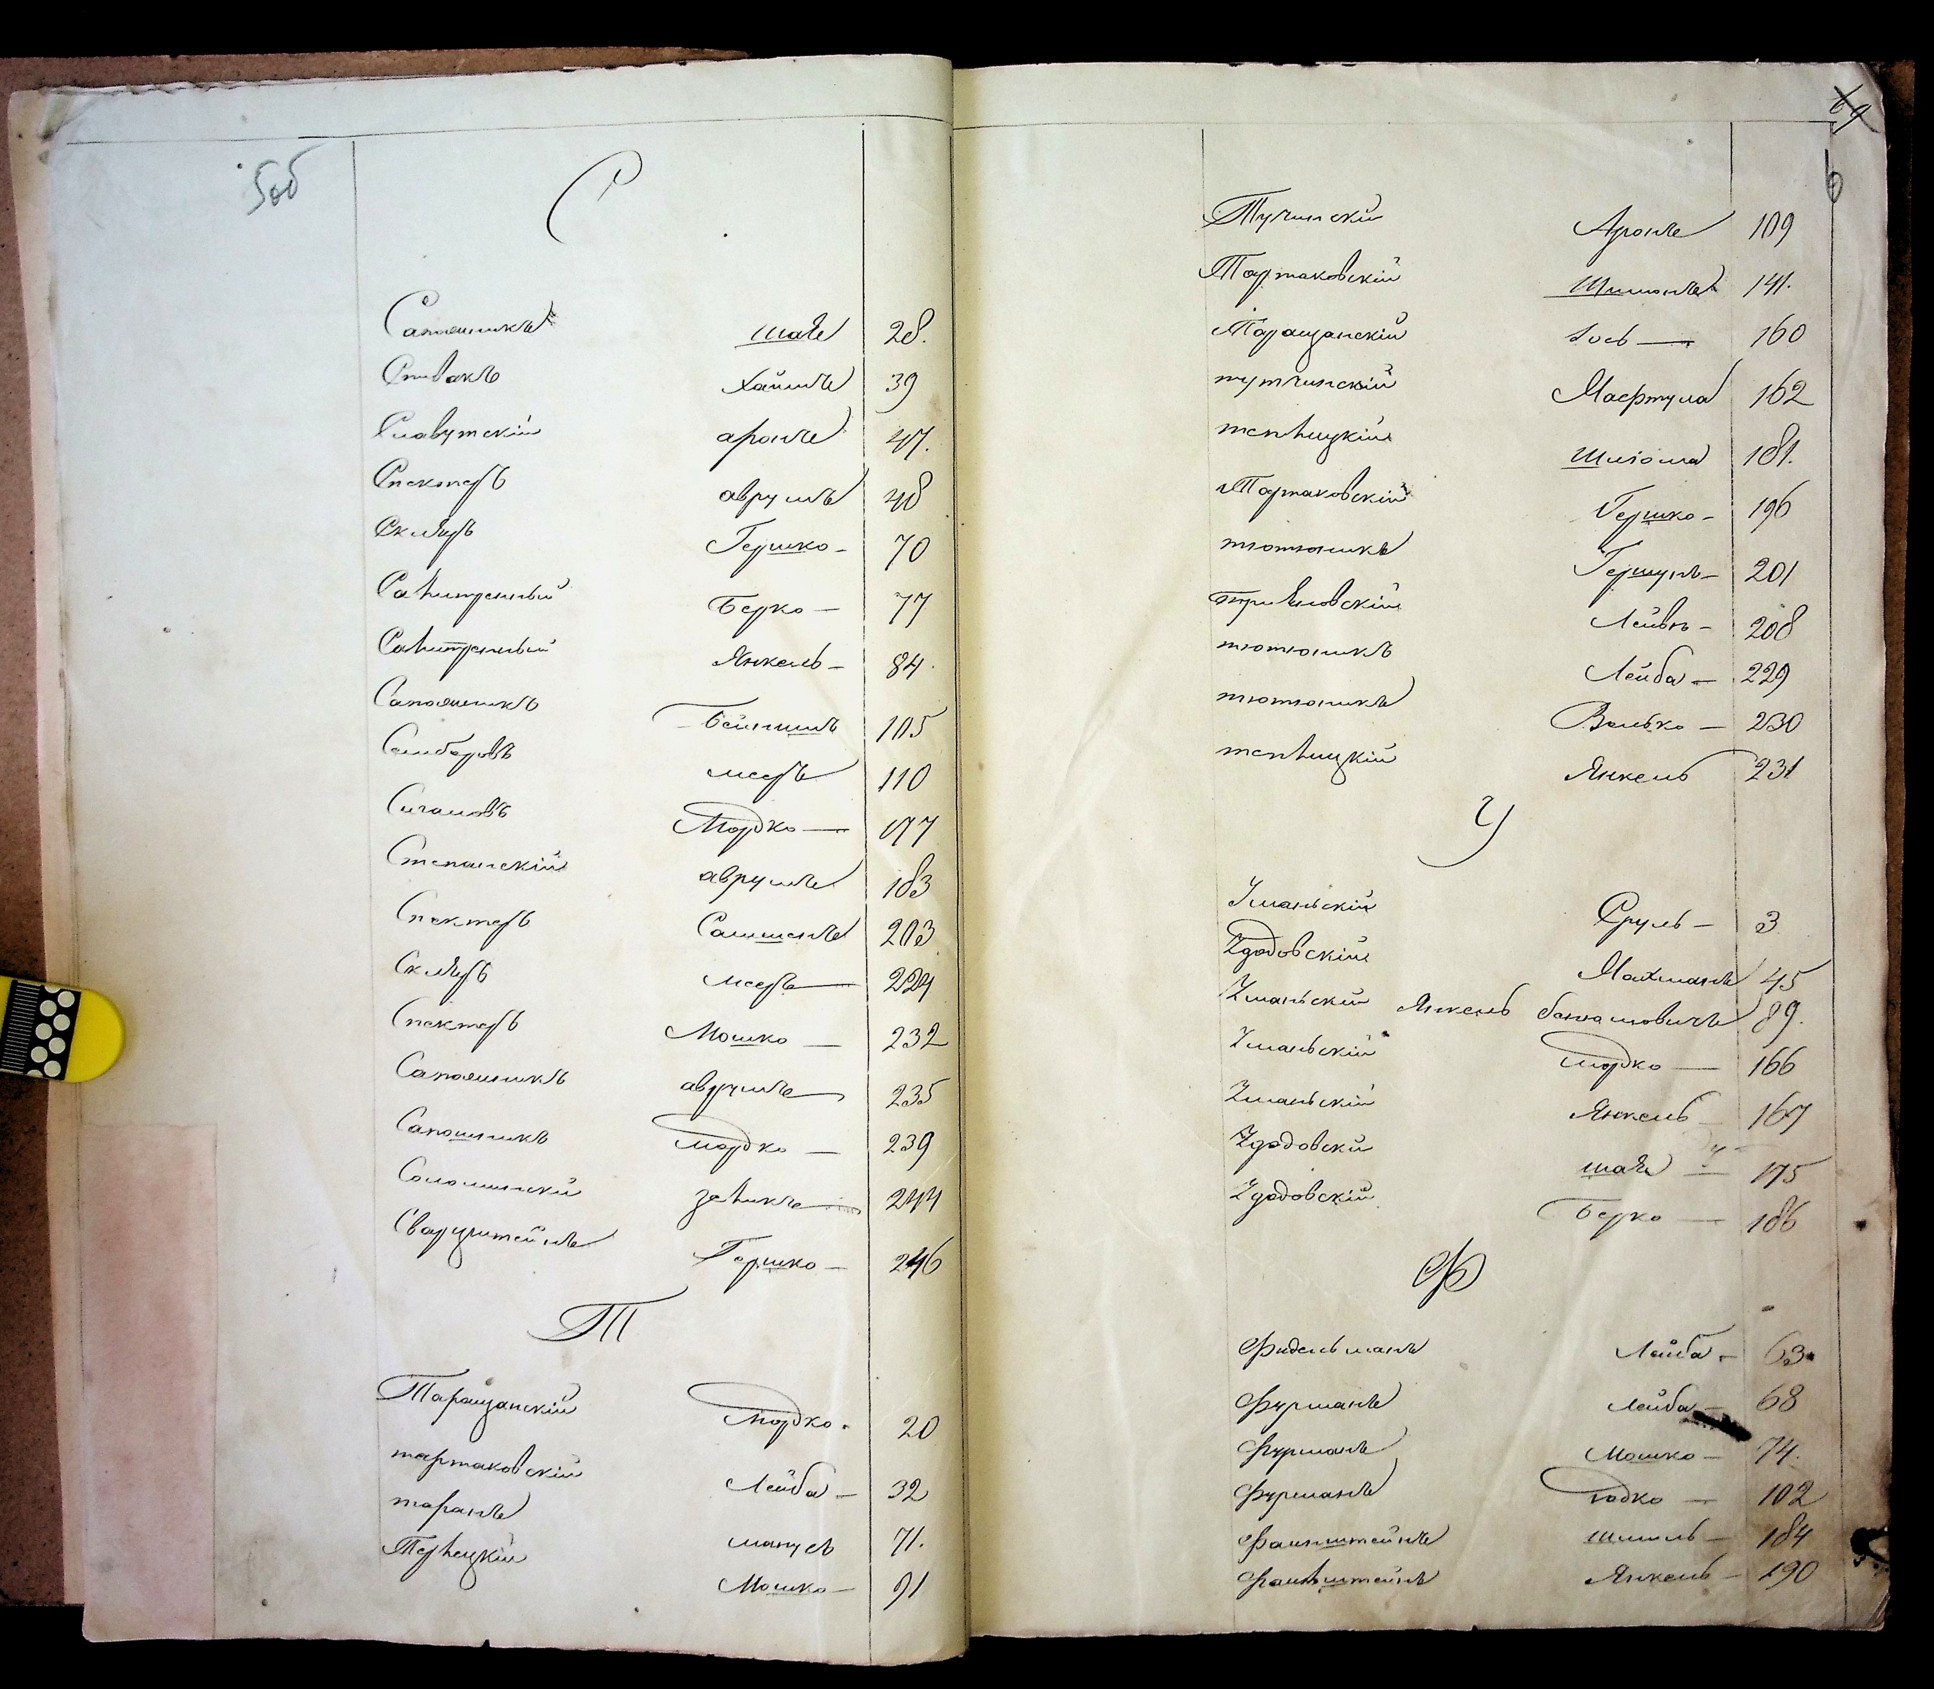 5об
С
Сапожникъ Шая 28.
Спивакъ Хаимъ 39
Славутскій Аронъ 47.
Спекторъ аврумъ 48
Скляръ Гершко - 70
Сакитренный Берко - 77
Сакитренный Янкель - 84.
Сапожникъ Бейнишъ 105
Самборовъ мееръ 110
Сигаловъ Мордко - 177
Степанскій аврумъ 183
Спекторъ 203
Скляръ мееръ 224
Спекторъ Мошко - 232
Сапожникъ аврумъ 235
Сапожникъ мордко - 239
244
Шварцштейнъ Гершко - 246
Т
Таращанскій Мордко - 20
тартаковскій Лейба - 32
таранъ манусъ 71.
Мошко - 91
69
6
Тучинскій Аронъ 109
Тартаковскій Шимонъ 141.
Таращанскій Іось - 160
162
теплицкій Шлиома 181.
Тартаковскій Гершко - 196
тютюникъ Гершунъ - 201
208
тютюникъ Лейба - 229
тютюникъ Волько - 230
теплицкій Янкель 231
У
Уманьскій Сруль - 3
Удодовскій Нахманъ 45
Уманьскій Янкель 89.
Уманьскій мордко - 166
Уманьскій Янкель - 167
Удодовскій Шая - 175
Удодовскій Берко - 186
Ф
Фидельманъ Лейба - 63.
Фурманъ Лейба - 68
Фурманъ Мошко - 74.
Фурманъ іодко - 102
Фанштейнъ шмиль - 184
Фанштейнъ Янкель - 190